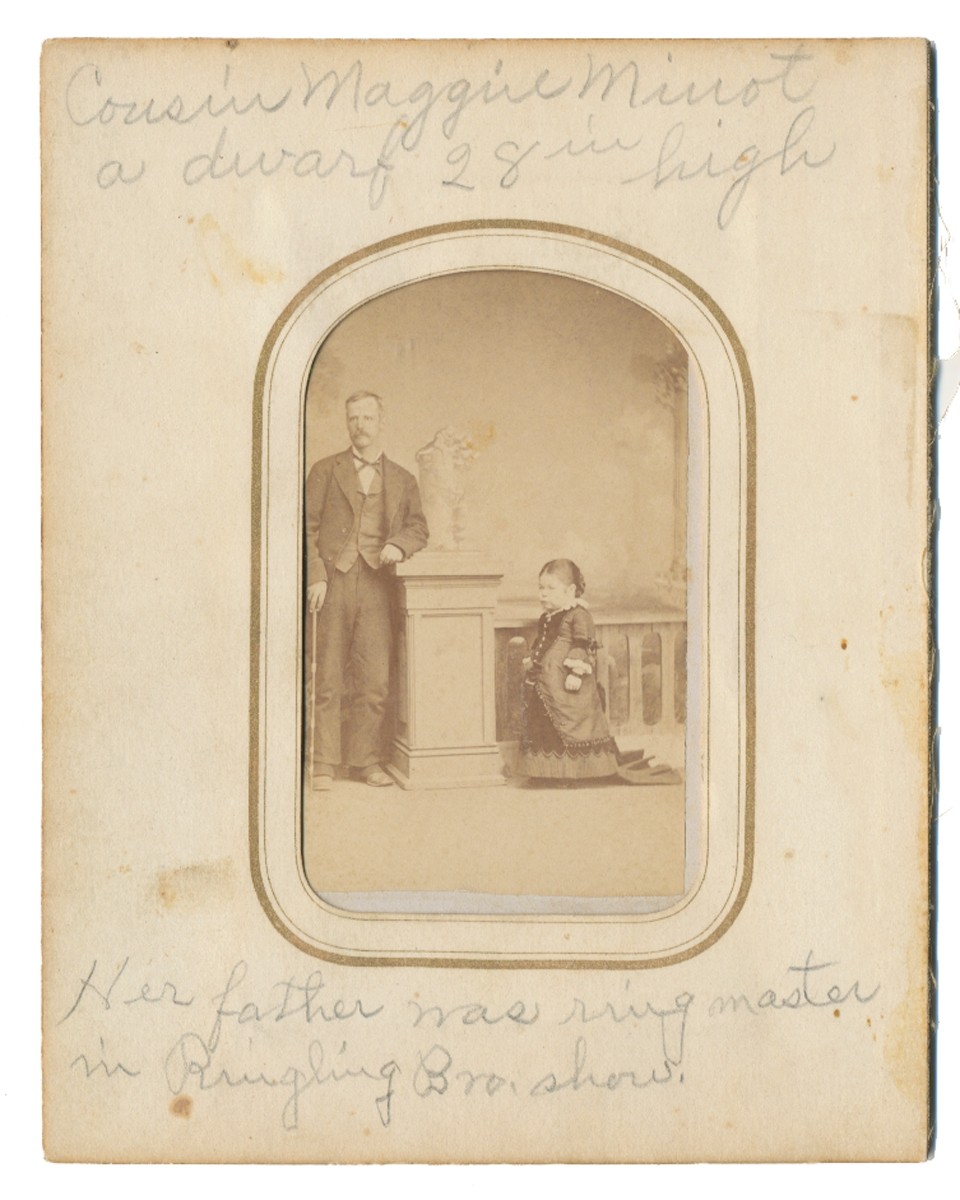 Cousin Maggie Minot
a dwarf 28 in high
Her father was ring master
in Ringling Bro. show.